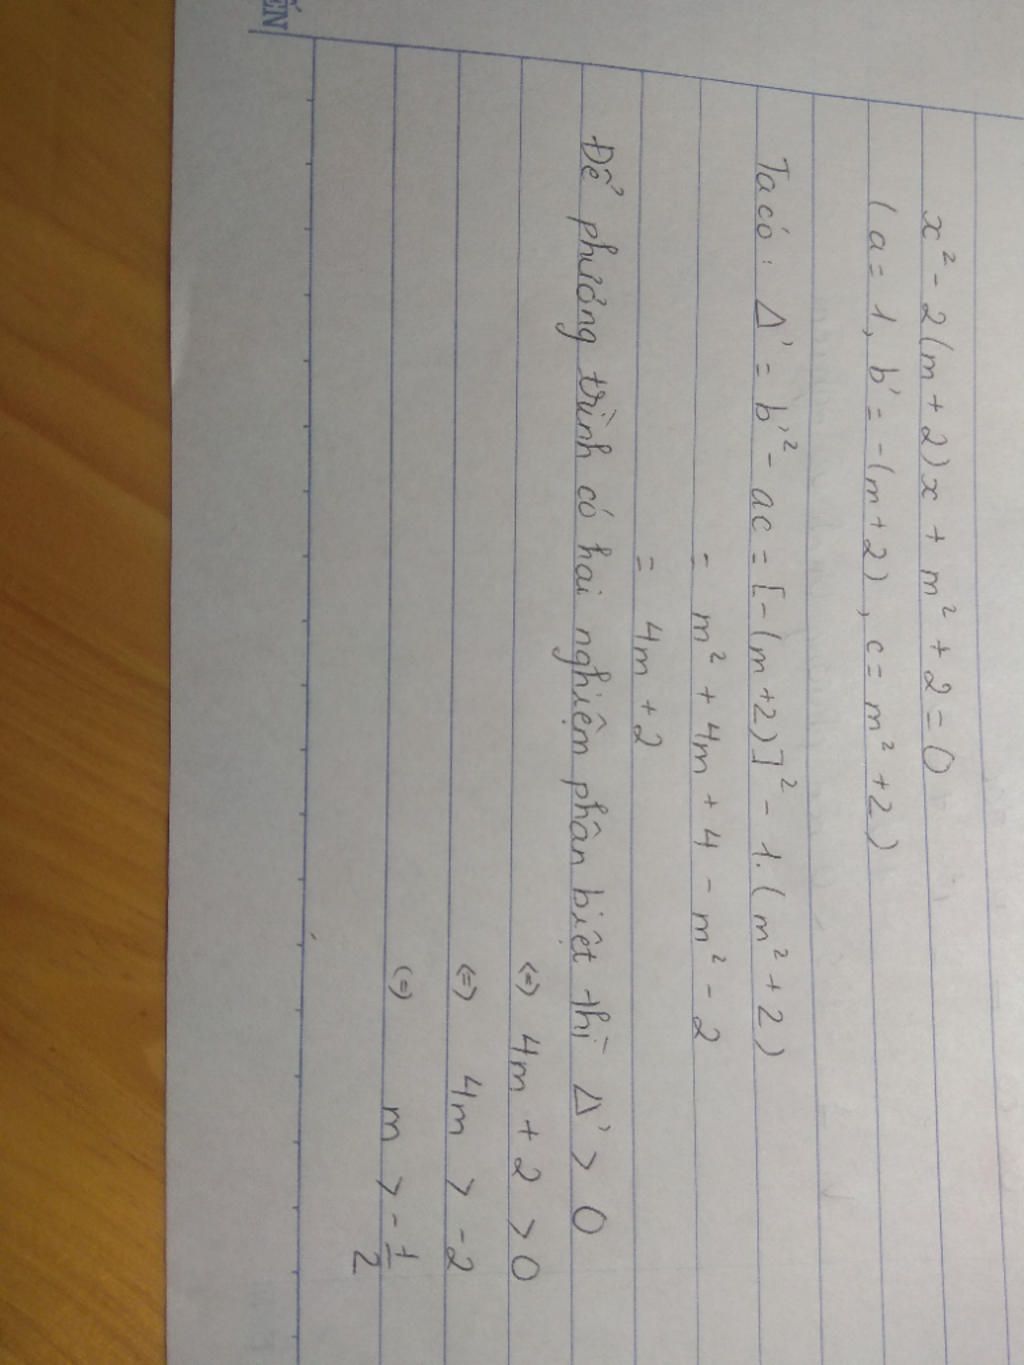 x² - 2(m + 2)x + m² + 2 = 0
(a = 1, b' = -(m+2), c = m² + 2)
Ta có: Δ' = b'² - ac = [-(m+2)]² - 1.(m² + 2)
= m² + 4m + 4 - m² - 2
= 4m + 2
Để phương trình có hai nghiệm phân biệt thì Δ' > 0
(=) 4m + 2 > 0
(=) 4m > -2
(=) m > -1/2
ẾN